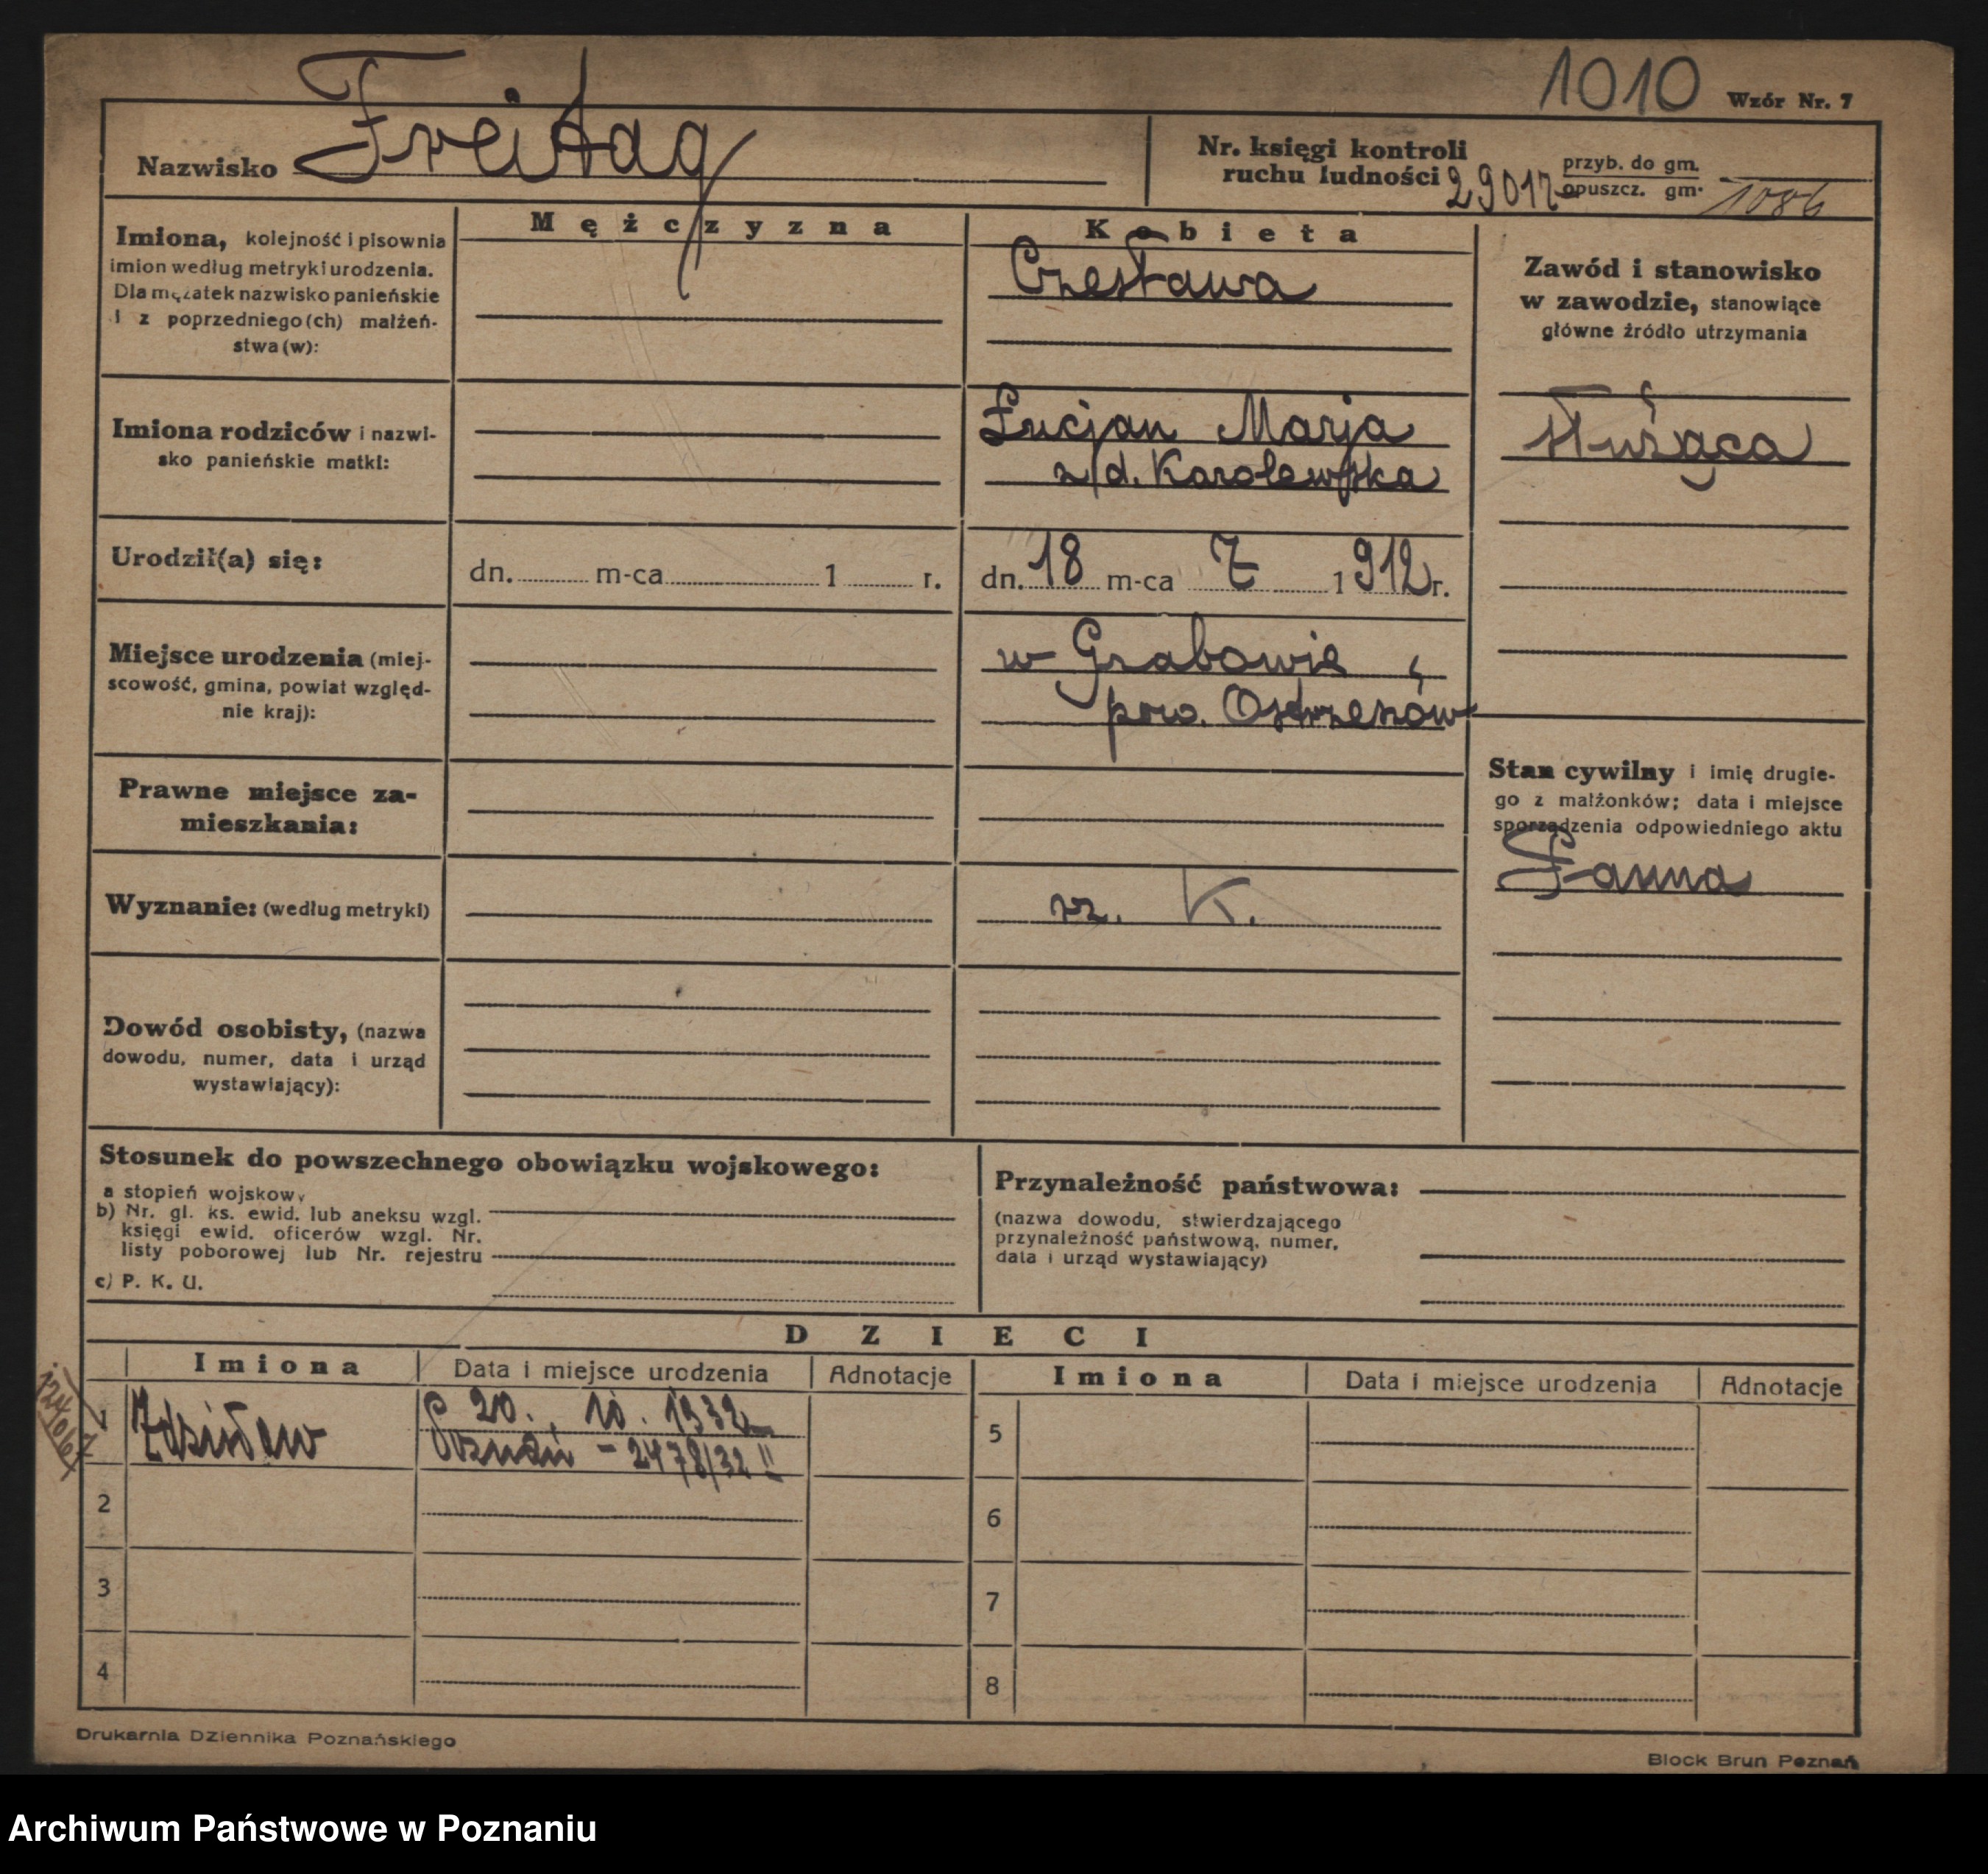 1010 Wzór Nr. 7
Nazwisko Freitag
Nr. księgi kontroli
ruchu ludności 29017
przyb. do gm.
opuszcz. gm. 1086
Mężczyzna Kobieta
Imiona, kolejność i pisownia
imion według metryki urodzenia.
Dla mężatek nazwisko panieńskie
i z poprzedniego(ch) małżeń-
stwa(w):
Czesława
Zawód i stanowisko
w zawodzie, stanowiące
główne źródło utrzymania
służąca
Imiona rodziców i nazwi-
sko panieńskie matki:
Łucjan Marja
z/d. Karolewska
Urodził(a) się:
dn. m-ca 1 r.
dn. 18 m-ca 7 1912 r.
Miejsce urodzenia (miej-
scowość, gmina, powiat względ-
nie kraj):
w Grabowie,
pow. Ostrzeszów
Prawne miejsce za-
mieszkania:
Stan cywilny i imię drugie-
go z małżonków; data i miejsce
sporządzenia odpowiedniego aktu
Panna
Wyznanie: (według metryki)
rz. K.
Dowód osobisty, (nazwa
dowodu, numer, data i urząd
wystawiający):
Stosunek do powszechnego obowiązku wojskowego:
a stopień wojskowy
b) Nr. gl. ks. ewid. lub aneksu wzgl.
księgi ewid. oficerów wzgl. Nr.
listy poborowej lub Nr. rejestru
c) P. K. U.
Przynależność państwowa:
(nazwa dowodu, stwierdzającego
przynależność państwową, numer,
data i urząd wystawiający)
DZIECI
Imiona Data i miejsce urodzenia Adnotacje Imiona Data i miejsce urodzenia Adnotacje
1 Zdzisław 20. 10. 1932
Poznań - 2478/32 II
5
2 6
3 7
4 8
Drukarnia Dziennika Poznańskiego
Block Brun Poznań
Archiwum Państwowe w Poznaniu